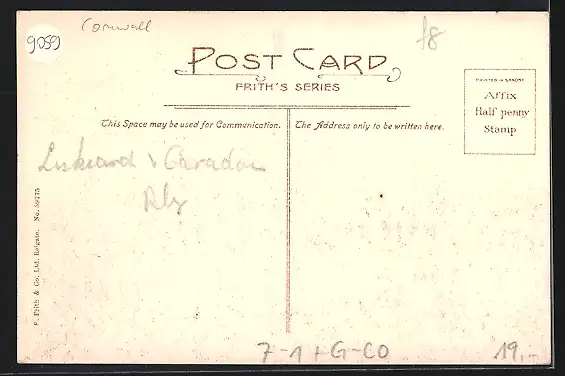 Cornwall
9059
£8
POST CARD
FRITH'S SERIES
PRINTED IN SAXONY
Affix
Half penny
Stamp
This Space may be used for Communication.
The Address only to be written here.
Liskeard & Caradon
Rly
F. Frith & Co. Ltd. Reigate. No. 59275
7-1+G-CO
19,-